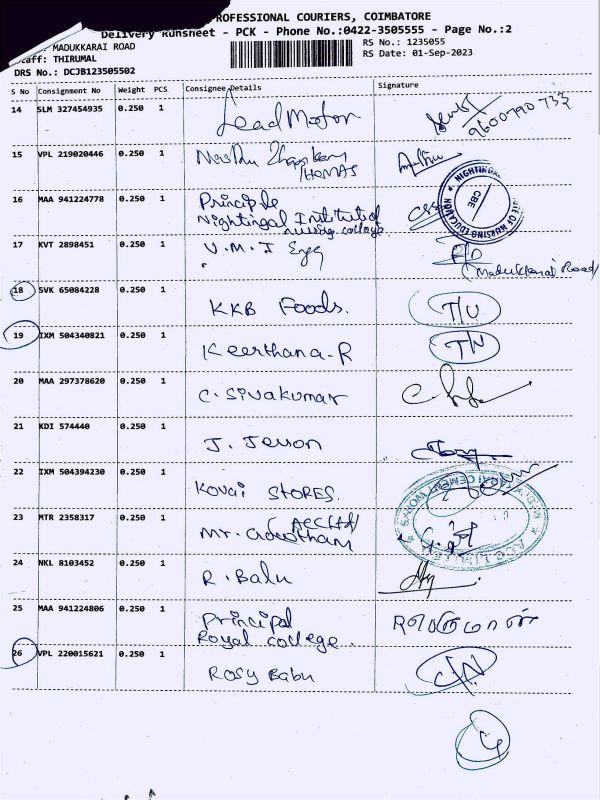 ROFESSIONAL COURIERS, COIMBATORE
Delivery Runsheet - PCK - Phone No.:0422-3505555 - Page No.:2
MADUKKARAI ROAD
RS No.: 1235055
Staff: THIRUMAL
RS Date: 01-Sep-2023
DRS No.: DCJB123505502
S No Consignment No Weight PCS Consignee Details Signature
14 SLM 327454935 0.250 1 Lead Motor
9600790733
15 VPL 219020446 0.250 1
/HOMAS
16 MAA 941224778 0.250 1 Principle
Nightingal Institute of
nursing college
17 KVT 2898451 0.250 1 V.M.J Engg
(Madukkarai Road)
18 SVK 65084228 0.250 1 KKB Foods. I/U
19 IXM 504340821 0.250 1 Keerthana-R I/N
20 MAA 297378620 0.250 1 C. Sivakumar
21 KDI 574440 0.250 1 J. Jenson
22 IXM 504394230 0.250 1 Kovai STORES.
23 MTR 2358317 0.250 1 Mr.
24 NKL 8103452 0.250 1 R. Balu
25 MAA 941224806 0.250 1 Principal
Royal college.
26 VPL 220015621 0.250 1 Rosy Babu